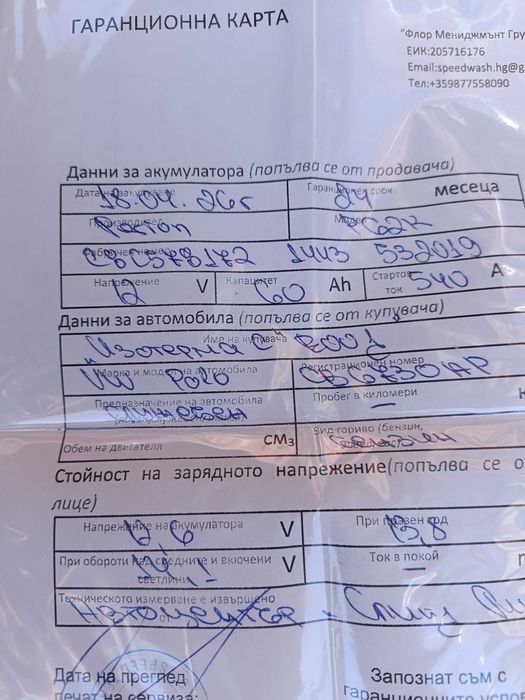 ГАРАНЦИОННА КАРТА
"Флор Мениджмънт Гру
ЕИК:205716176
Email:speedwash.hg@g
Тел:+359877558090
Данни за акумулатора (попълва се от продавача)
Дата на закупуване 18.04.26г Гаранционен срок 24 месеца
Производител Rocton Модел
532019
Напрежение 12 V Капацитет 60 Ah Стартов ток 540 A
Данни за автомобила (попълва се от купувача)
Име на купувача „Изотерма С 2001
Марка и модел на автомобила VW Polo Регистрационен номер
Предназначение на автомобила служебен Пробег в километри —
Обем на двигателя СМ3 Вид гориво (бензин,
Стойност на зарядното напрежение(попълва се о
лице)
Напрежение на акумулатора 12,6 V При празен ход 13,8
При обороти над средните и включени светлини V Ток в покой —
Техническото измерване е извършено от
Дата на преглед Запознат съм с
печат на сервиза: гаранционните услов